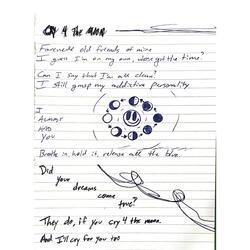 CRY 4 THE MOON
Farewell old friends of mine
I guess I'm on my own, who's got the time?
Can I say that I'm all clean?
I still grasp my addictive personality
I
Almost
HAD
You
Breathe in, hold it, release all the blue.
Did
your
dreams
come
true?
They do, if you cry 4 the moon.
And I'll cry for you too